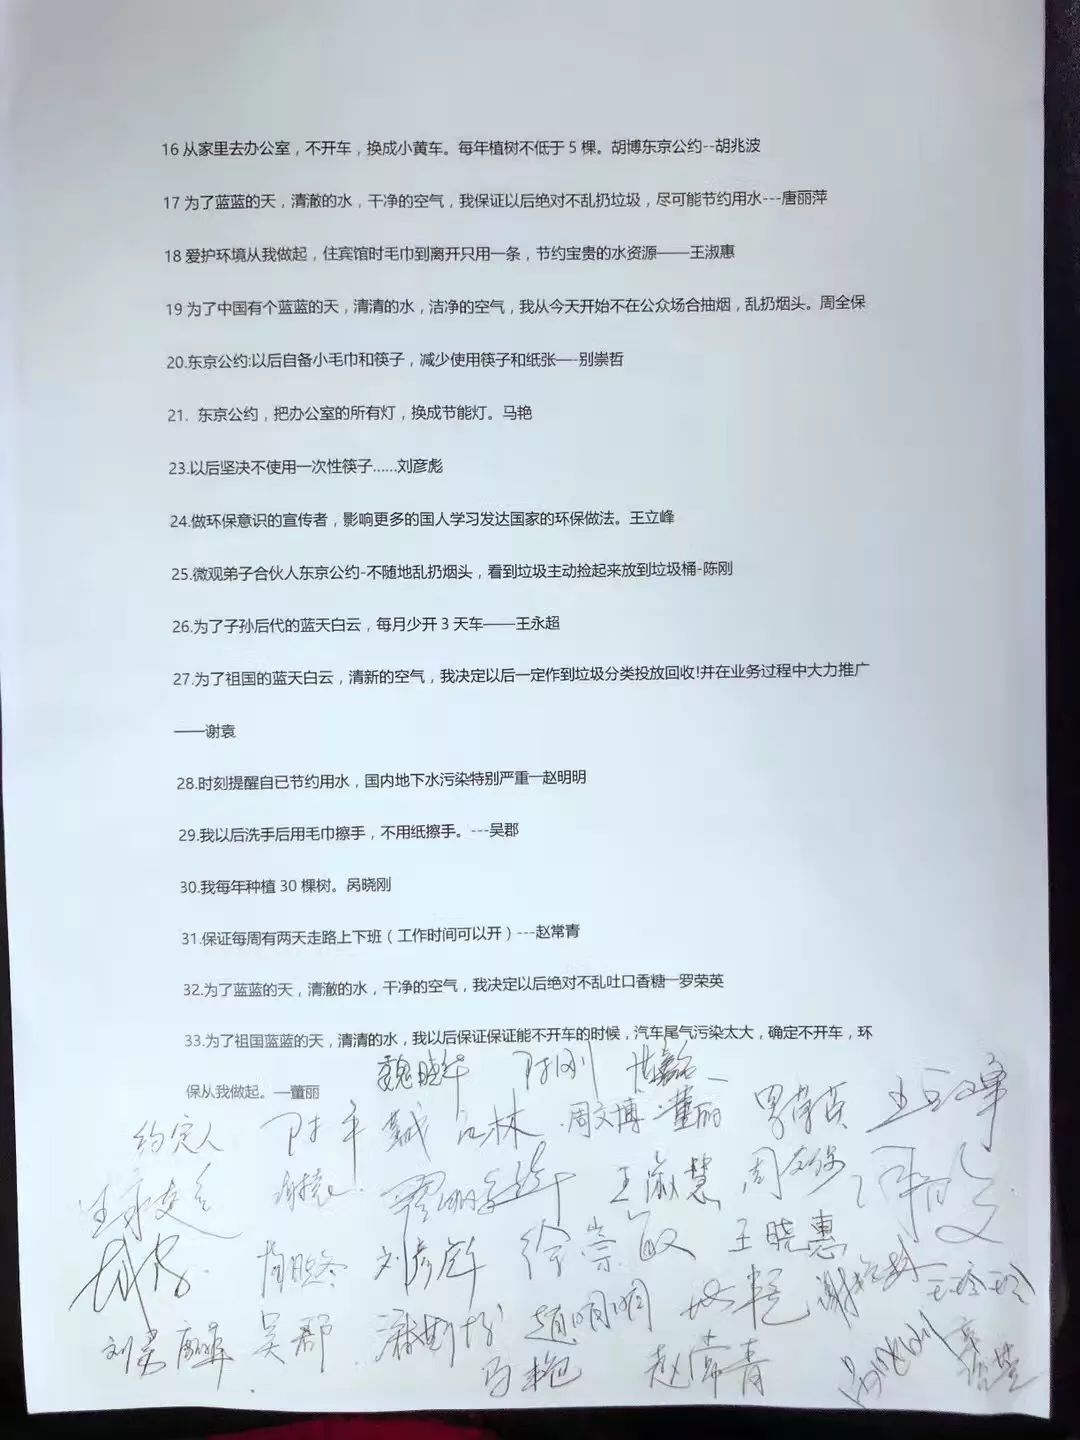 16 从家里去办公室，不开车，换成小黄车。每年植树不低于 5 棵。胡博东京公约--胡兆波
17 为了蓝蓝的天，清澈的水，干净的空气，我保证以后绝对不乱扔垃圾，尽可能节约用水---唐丽萍
18 爱护环境从我做起，住宾馆时毛巾到离开只用一条，节约宝贵的水资源——王淑惠
19 为了中国有个蓝蓝的天，清清的水，洁净的空气，我从今天开始不在公众场合抽烟，乱扔烟头。周全保
20.东京公约:以后自备小毛巾和筷子，减少使用筷子和纸张—-别崇哲
21. 东京公约，把办公室的所有灯，换成节能灯。马艳
23.以后坚决不使用一次性筷子……刘彦彪
24.做环保意识的宣传者，影响更多的国人学习发达国家的环保做法。王立峰
25.微观弟子合伙人东京公约-不随地乱扔烟头，看到垃圾主动捡起来放到垃圾桶-陈刚
26.为了子孙后代的蓝天白云，每月少开 3 天车——王永超
27.为了祖国的蓝天白云，清新的空气，我决定以后一定作到垃圾分类投放回收!并在业务过程中大力推广
——谢袁
28.时刻提醒自已节约用水，国内地下水污染特别严重—赵明明
29.我以后洗手后用毛巾擦手，不用纸擦手。---吴郡
30.我每年种植 30 棵树。呙晓刚
31.保证每周有两天走路上下班（工作时间可以开）---赵常青
32.为了蓝蓝的天，清澈的水，干净的空气，我决定以后绝对不乱吐口香糖—罗荣英
33.为了祖国蓝蓝的天，清清的水，我以后保证保证能不开车的时候，汽车尾气污染太大，确定不开车，环
保从我做起。—董丽
魏晓华 陈刚
约定人 周文博 董丽 罗荣英 王立峰
谢袁 王淑慧
刘彦彪 徐崇敏 王晓惠
吴郡 赵明明 王玲玲
马艳 赵常青